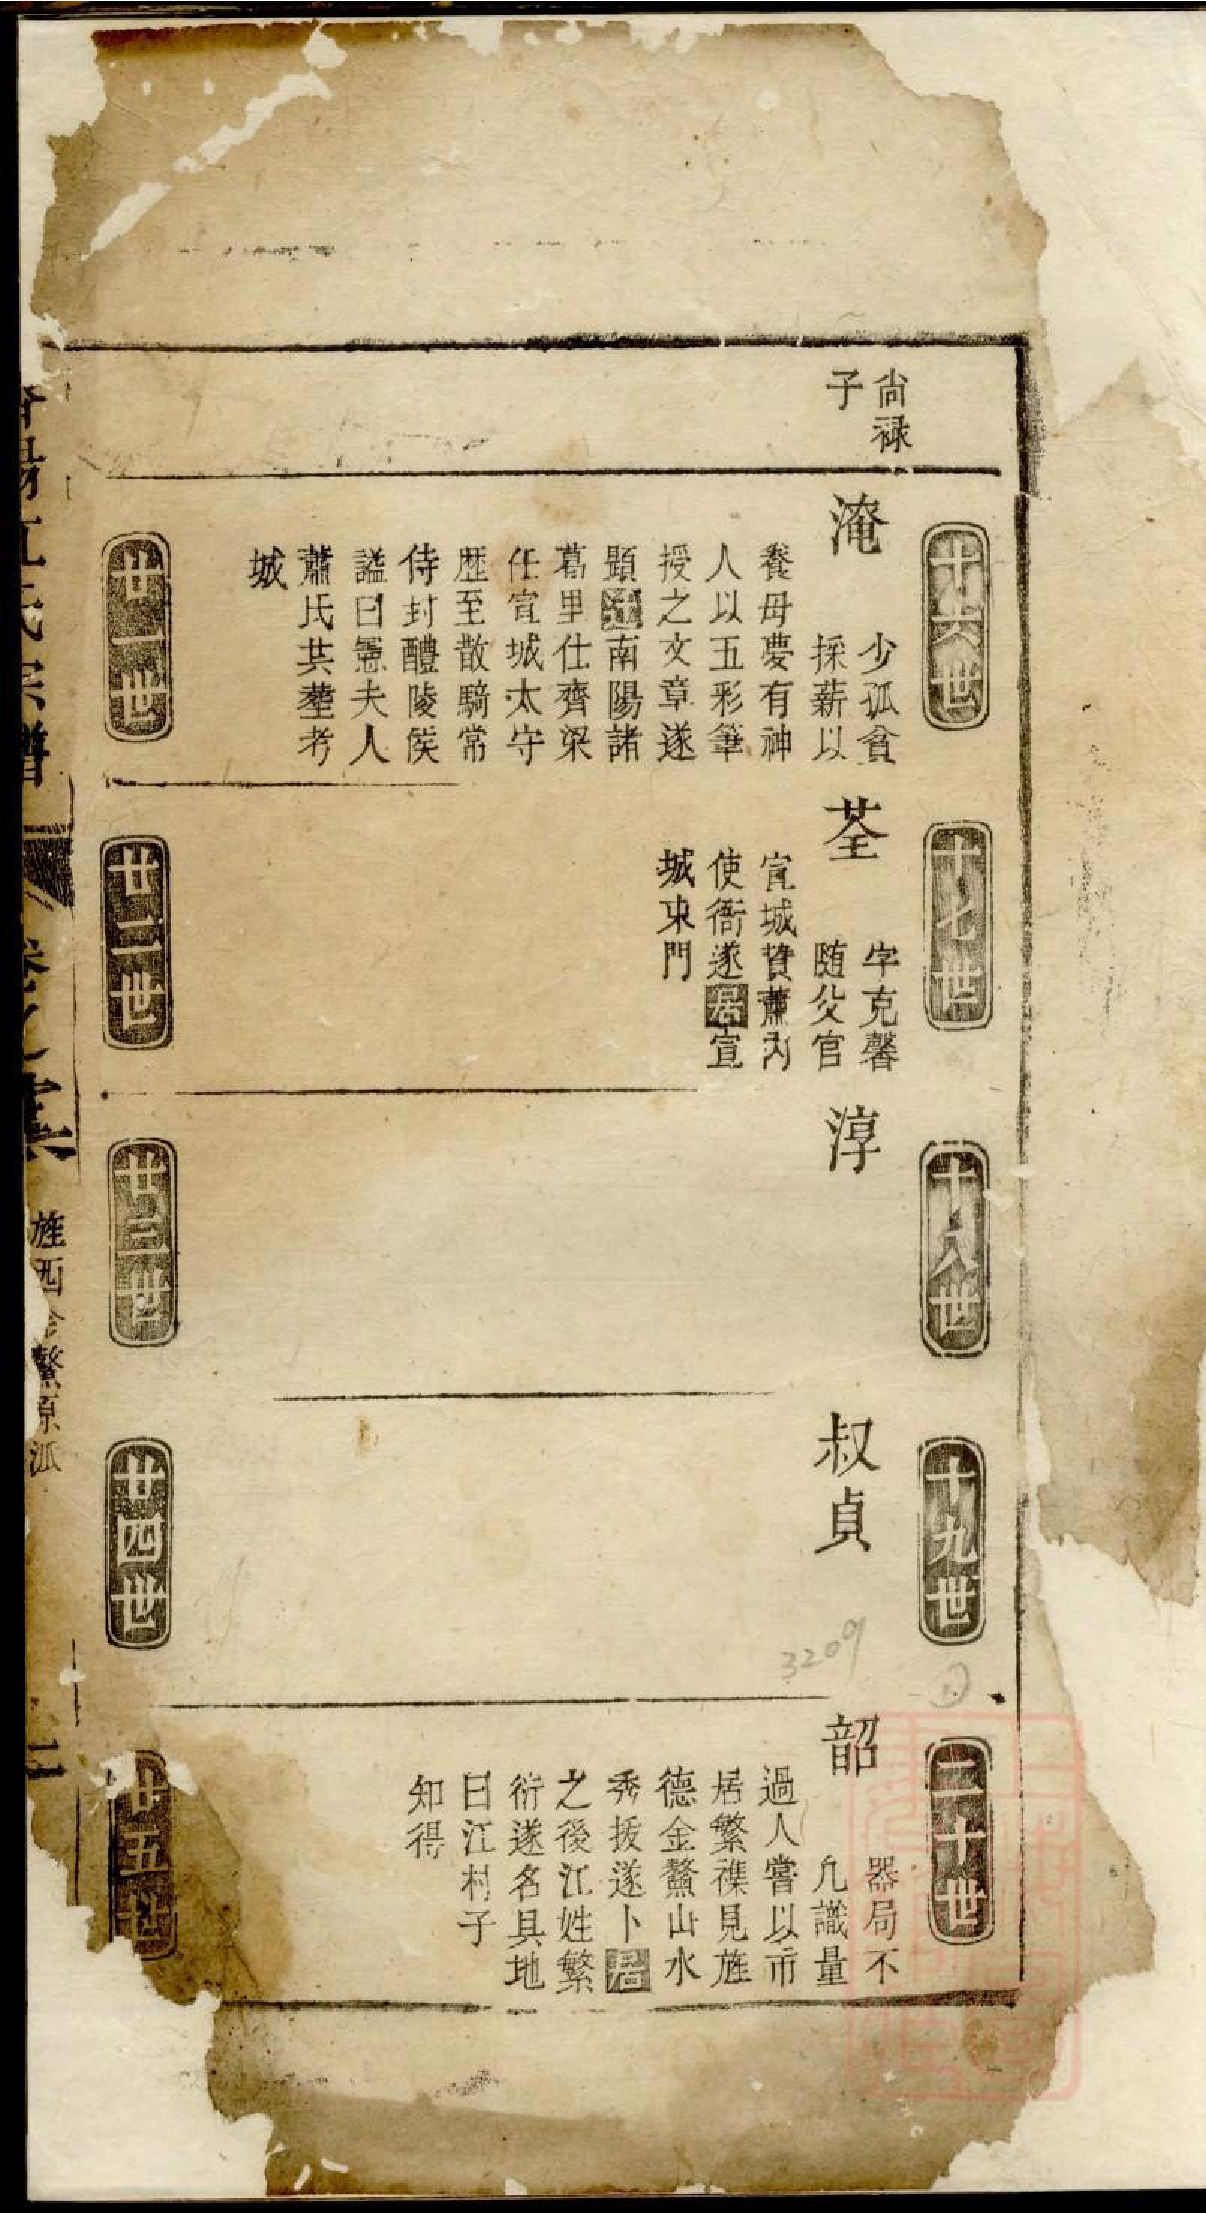 尙禄
子
十六世
淹
少孤貧
採薪以
養母夢有神
人以五彩筆
授之文章遂
顯迁南陽諸
葛里仕齊梁
任宣城太守
歴至散騎常
侍封醴陵侯
謚曰憲夫人
蕭氏共塟考
城
十七世
荃
字克馨
随父官
宣城贅蕭内
使衙遂居宣
城東門
十八世
淳
十九世
叔貞
二十世
韶
器局不
凢識量
過人嘗以市
居繁襍見旌
德金鰲山水
秀拔遂卜居
之後江姓繁
衍遂名其地
曰江村子
知得
廿一世
廿二世
廿三世
廿四世
廿五世
陽江氏宗譜
卷之
旌西金鰲原派
3209